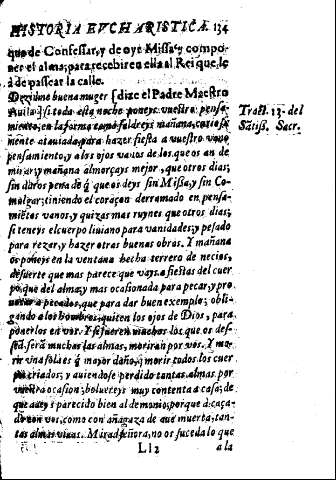 HISTORIA EVCHARISTICA. 134
que de Confessar, y de oyr Missa, y compo-
ner el alma, para recebir en ella al Rei que le
à de passear la calle.
Dezidme buena muger (dize el Padre Maestro
Auila) si toda esta noche poneys vuestro pensa-
miento, en la forma como saldreys mañana,
mente ataviada, para hazer fiesta a vuestro vano
pensamiento, y a los ojos vanos de los que os an de
mirar, y mañana almorçays mejor, que otros dias,
sin duros pena de q̃ que os deys sin Missa, y sin Co-
mulgar; tiniendo el coraçon derramado en pensa-
miẽtos vanos, y quizas mas ruynes que otros dias;
si teneys el cuerpo liuiano para vanidades; y pesado
para rezar, y hazer otras buenas obras. Y mañana
os poneys en la ventana hecha terrero de necios,
de suerte que mas parece que vays a fiestas del cuer
po que del alma; y mas ocasionada para pecar, y pro
uocar a pecados, que para dar buen exemplo; obli-
gando a los hombres, quiten los ojos de Dios, para
ponerlos en vos. Y si fueren muchos los que os des-
sea, serà muchas las almas, moriràn por vos. Y mo-
rir vna sola es q̃ mayor daño, q̃ morir todos los cuer
pos criados; y auiendose perdido tantas almas por
vuestra ocasion; boluereys muy contenta a casa; de
que aueys parecido bien al demonio, porque à caça-
do con vos, como con añagaza de aue muerta, tan-
tas almas viuas. Mirad señora, no os suceda lo que
Ll2 a la
Tract. 13. del
Sãtiss. Sacr.